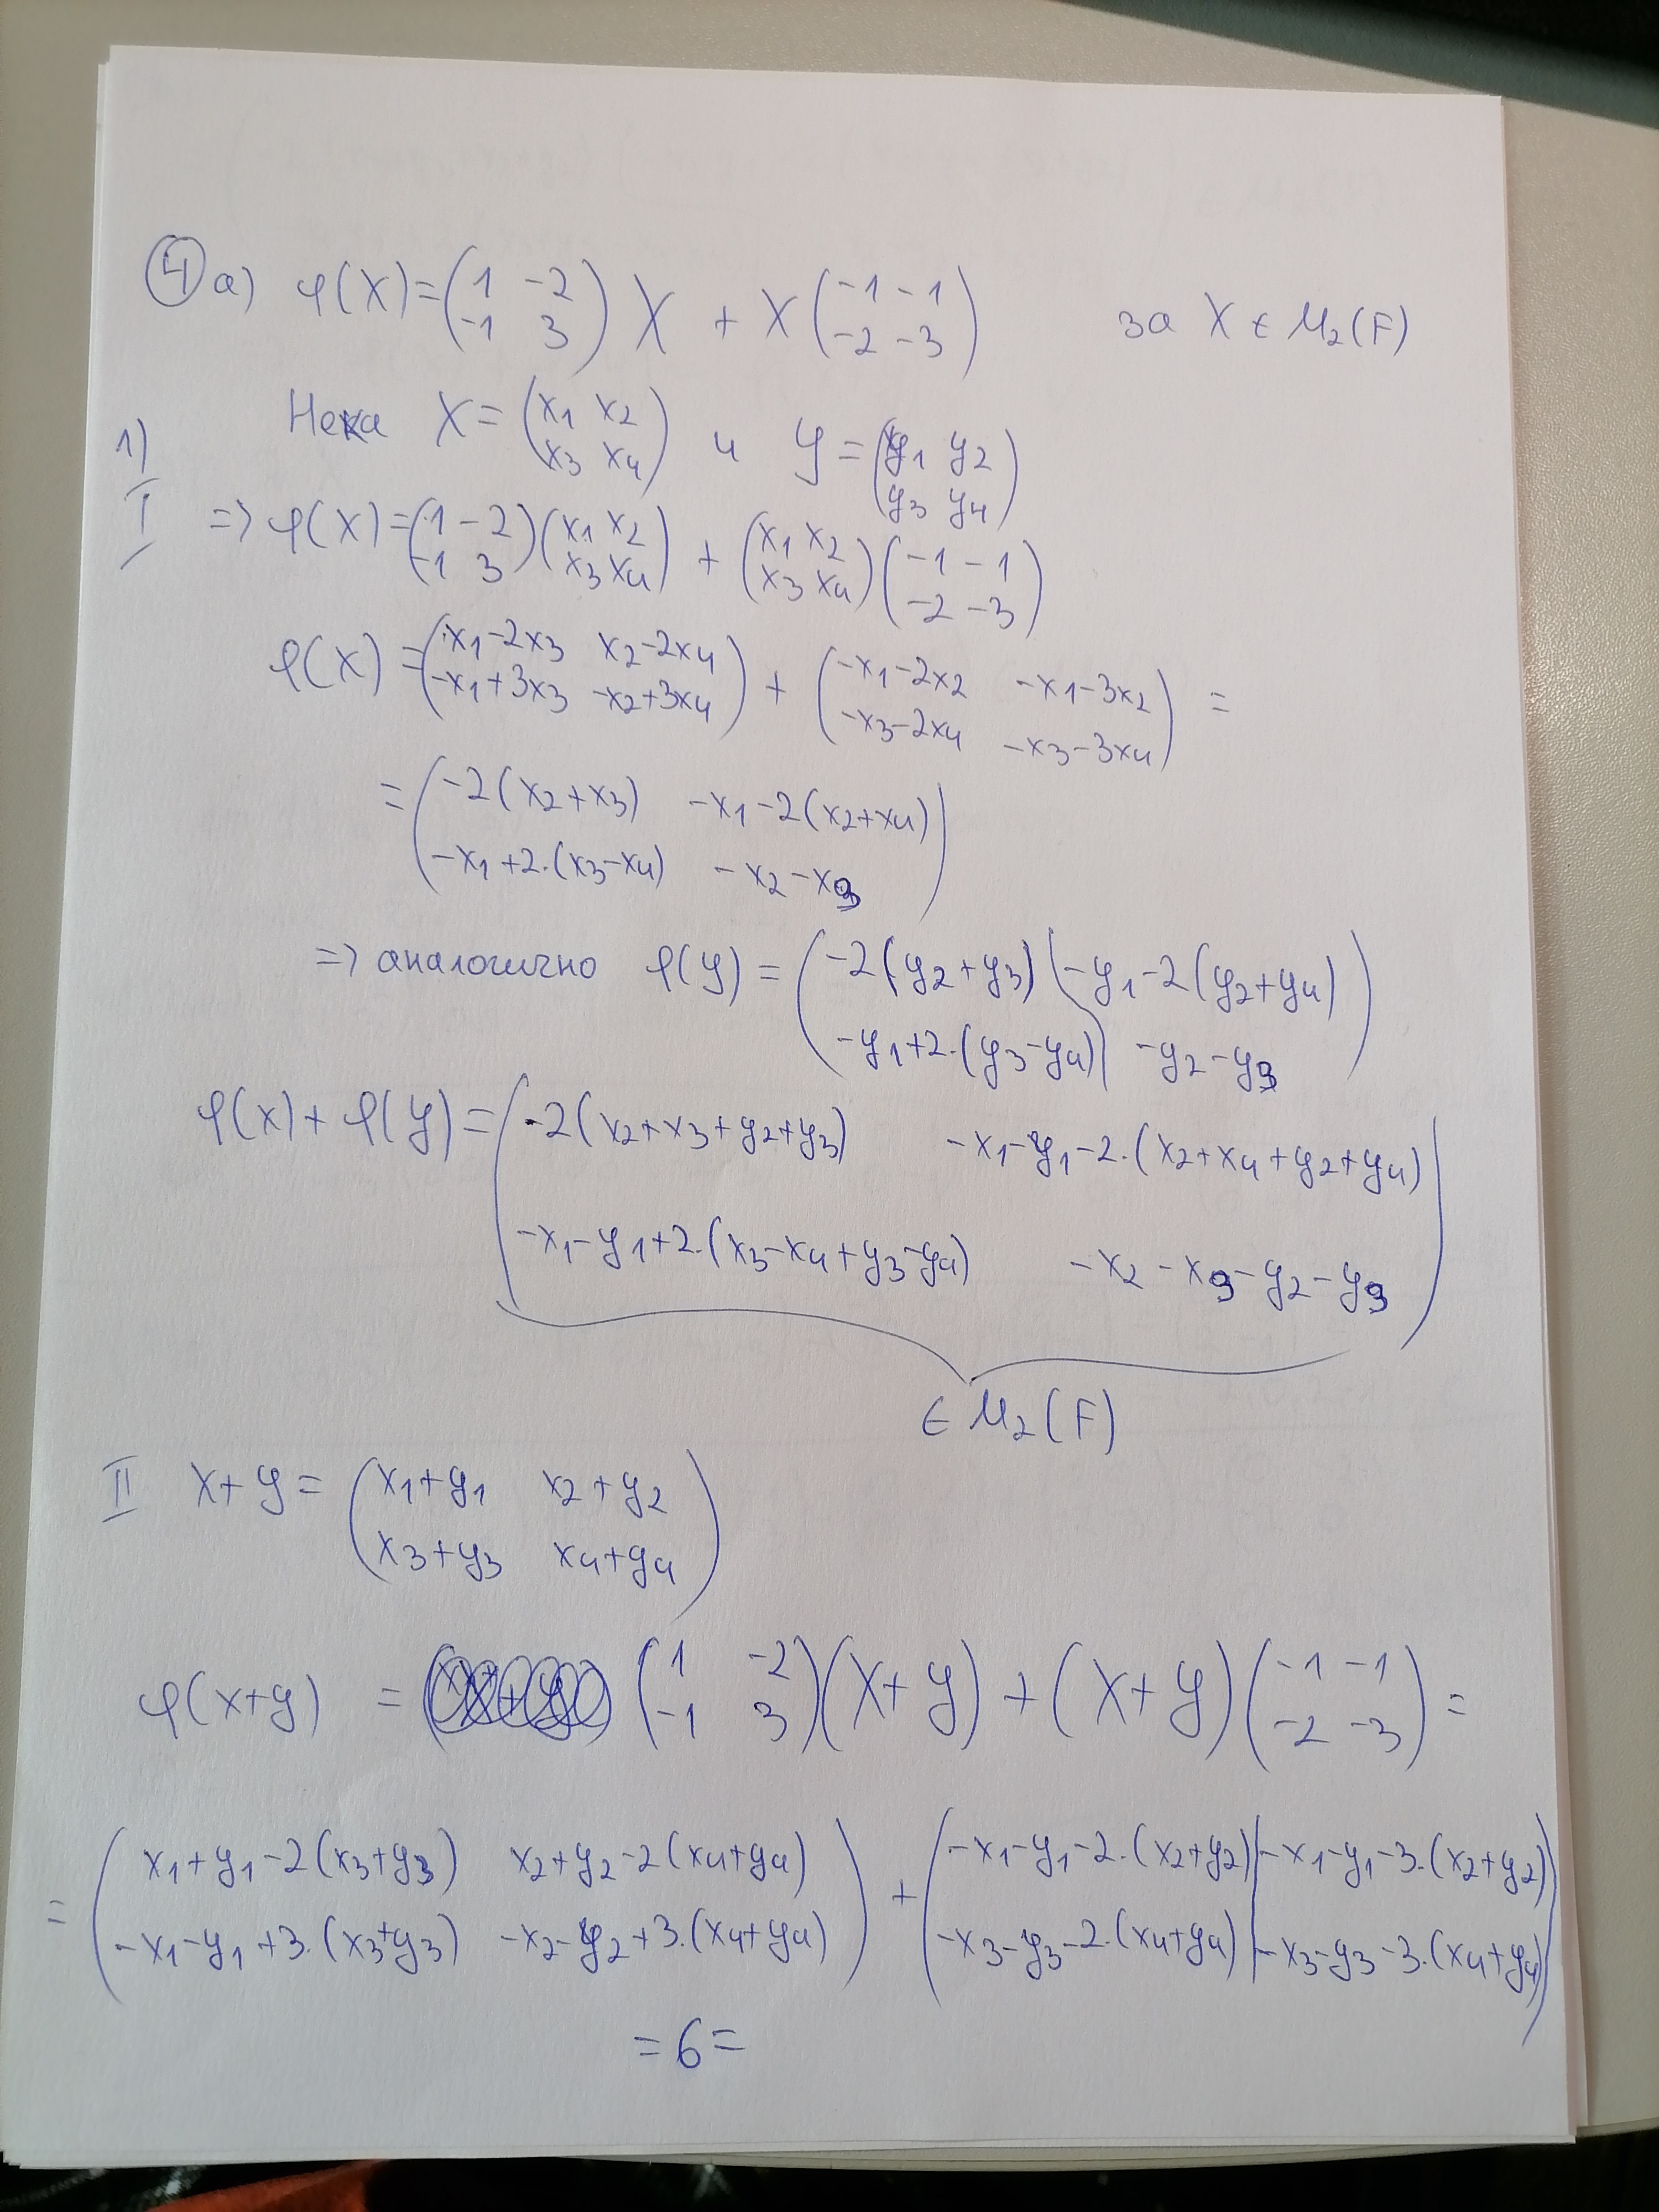 ④ а) φ(X) = (1 -2 -1 3) X + X (-1 -1 -2 -3) за X ∈ M₂(F)
1) Нека X = (x₁ x₂ x₃ x₄) и Y = (y₁ y₂ y₃ y₄)
I => φ(X) = (1 -2 -1 3)(x₁ x₂ x₃ x₄) + (x₁ x₂ x₃ x₄)(-1 -1 -2 -3)
φ(X) = (x₁-2x₃ x₂-2x₄ -x₁+3x₃ -x₂+3x₄) + (-x₁-2x₂ -x₁-3x₂ -x₃-2x₄ -x₃-3x₄) =
= (-2(x₂+x₃) -x₁-2(x₂+x₄) -x₁+2.(x₃-x₄) -x₂-x₃)
=> аналогично φ(y) = (-2(y₂+y₃) -y₁-2(y₂+y₄) -y₁+2.(y₃-y₄) -y₂-y₃)
φ(x) + φ(y) = (-2(x₂+x₃+y₂+y₃) -x₁-y₁-2.(x₂+x₄+y₂+y₄)
-x₁-y₁+2.(x₃-x₄+y₃-y₄) -x₂-x₃-y₂-y₃)
∈ M₂(F)
II x+y = (x₁+y₁ x₂+y₂
x₃+y₃ x₄+y₄)
φ(x+y) = (1 -2 -1 3)(X+Y) + (X+Y)(-1 -1 -2 -3) =
= (x₁+y₁-2(x₃+y₃) x₂+y₂-2(x₄+y₄) + (-x₁-y₁-2.(x₂+y₂) | -x₁-y₁-3.(x₂+y₂)
-x₁-y₁+3.(x₃+y₃) -x₂-y₂+3.(x₄+y₄)) -x₃-y₃-2.(x₄+y₄) | -x₃-y₃-3.(x₄+y₄))
=6=